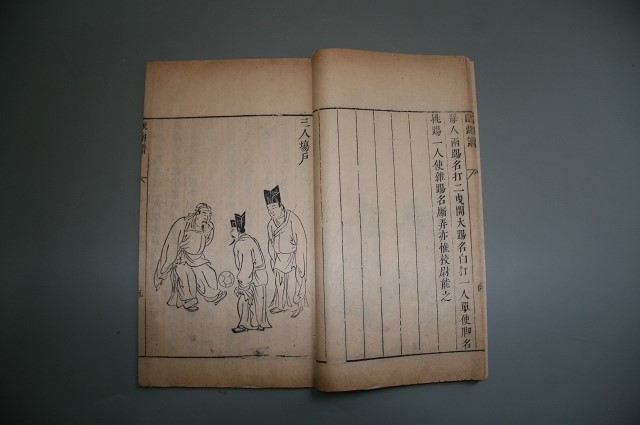 蹴踘譜
每人兩踢名打二曳開大踢名白打一人單使脚名
挑踢一人使雜踢名廝弄亦惟校尉能之
三人塲戶